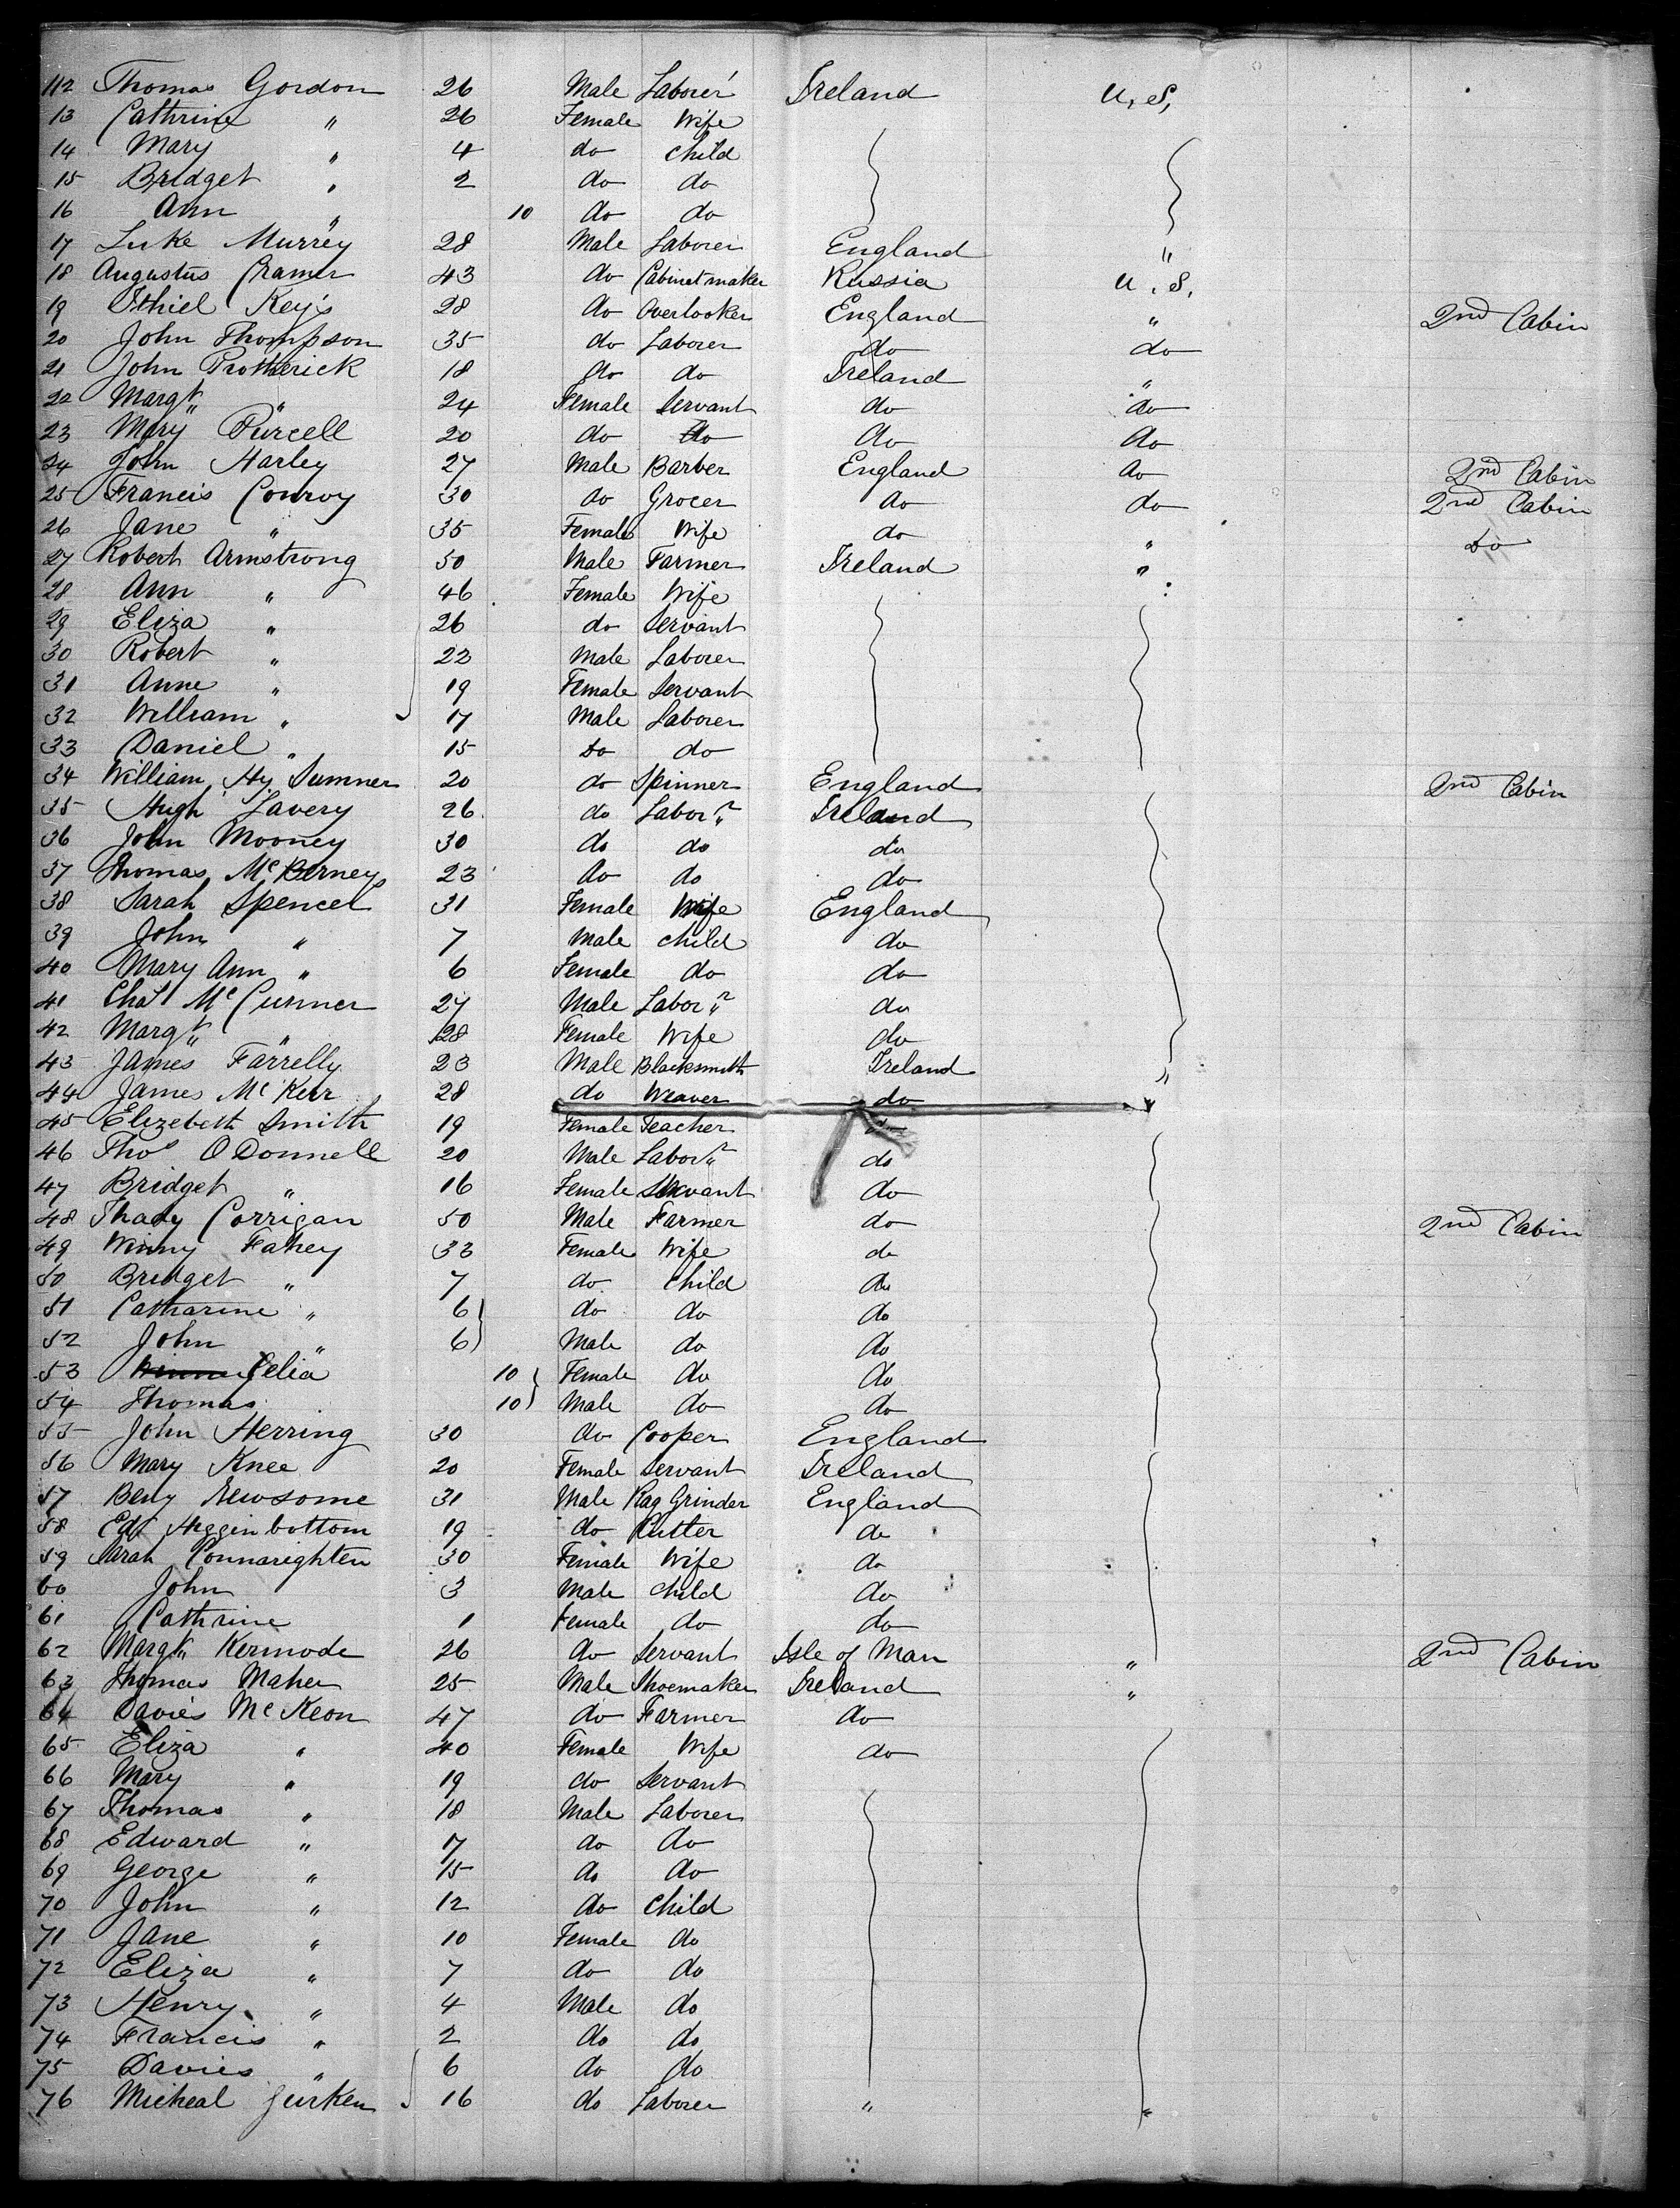 112 Thomas Gordon 26 Male Laborer Ireland U. S,
13 Cathrine " 26 Female Wife
14 Mary " 4 do child
15 Bridget " 2 do do
16 Ann " 10 do do
17 Luke Murrey 28 Male Laborer England "
18 Augustus Cramer 43 do Cabinet maker Russia U. S,
19 Ithiel Keys 28 do Overlooker England " 2nd Cabin
20 John Thompson 35 do Laborer do do
21 John Protherick 18 do do Ireland "
22 Margt " 24 Female Servant do do
23 Mary Purcell 20 do do do do
24 John Harley 27 Male Barber England do 2nd Cabin
25 Francis Conroy 30 do Grocer do do 2nd Cabin
26 Jane " 35 Female Wife do " do
27 Robert Armstrong 50 Male Farmer Ireland "
28 Ann " 46 Female Wife
29 Eliza " 26 do Servant
30 Robert " 22 Male Laborer
31 Anne " 19 Female Servant
32 William " 17 Male Laborer
33 Daniel " 15 do do
34 William Hy Sumner 20 do Spinner England 2nd Cabin
35 Hugh Lavery 26 do Labor" Ireland
36 John Mooney 30 do do do
37 Thomas McBerney 23 do do do
38 Sarah Spencer 31 Female Wife England
39 John " 7 Male child do
40 Mary Ann " 6 Female do do
41 Chas McCunner 27 Male Labor" do
42 Margt " 28 Female Wife do
43 James Farrelly 23 Male Blacksmith Ireland "
44 James McKerr 28 do Weaver do
45 Elizebeth Smith 19 Female Teacher do
46 Thos ODonnell 20 Male Labor" do
47 Bridget " 16 Female Servant do
48 Thady Corrigan 50 Male Farmer do 2nd Cabin
49 Winny Fahey 33 Female Wife do
50 Bridget " 7 do Child do
51 Catharine " 6 do do do
52 John " 6 Male do do
53 Celia 10 Female do do
54 Thomas 10 Male do do
55 John Herring 30 do Cooper England
56 Mary Knee 20 Female Servant Ireland
57 Benj Newsome 31 Male Rag Grinder England
58 Edt Higginbottom 19 do Cutter do
59 Sarah Connarighten 30 Female Wife do
60 John 3 Male Child do
61 Cathrine 1 Female do do
62 Margt Kermode 26 do Servant Isle of Man " 2nd Cabin
63 Thomas Maher 25 Male Shoemaker Ireland "
64 Davies McKeon 47 do Farmer do
65 Eliza " 40 Female Wife do
66 Mary " 19 do Servant
67 Thomas " 18 Male Laborer
68 Edward " 17 do do
69 George " 15 do do
70 John " 12 do child
71 Jane " 10 Female do
72 Eliza " 7 do do
73 Henry " 4 Male do
74 Francis " 2 do do
75 Davies " 6 do do
76 Micheal 16 do Laborer " "